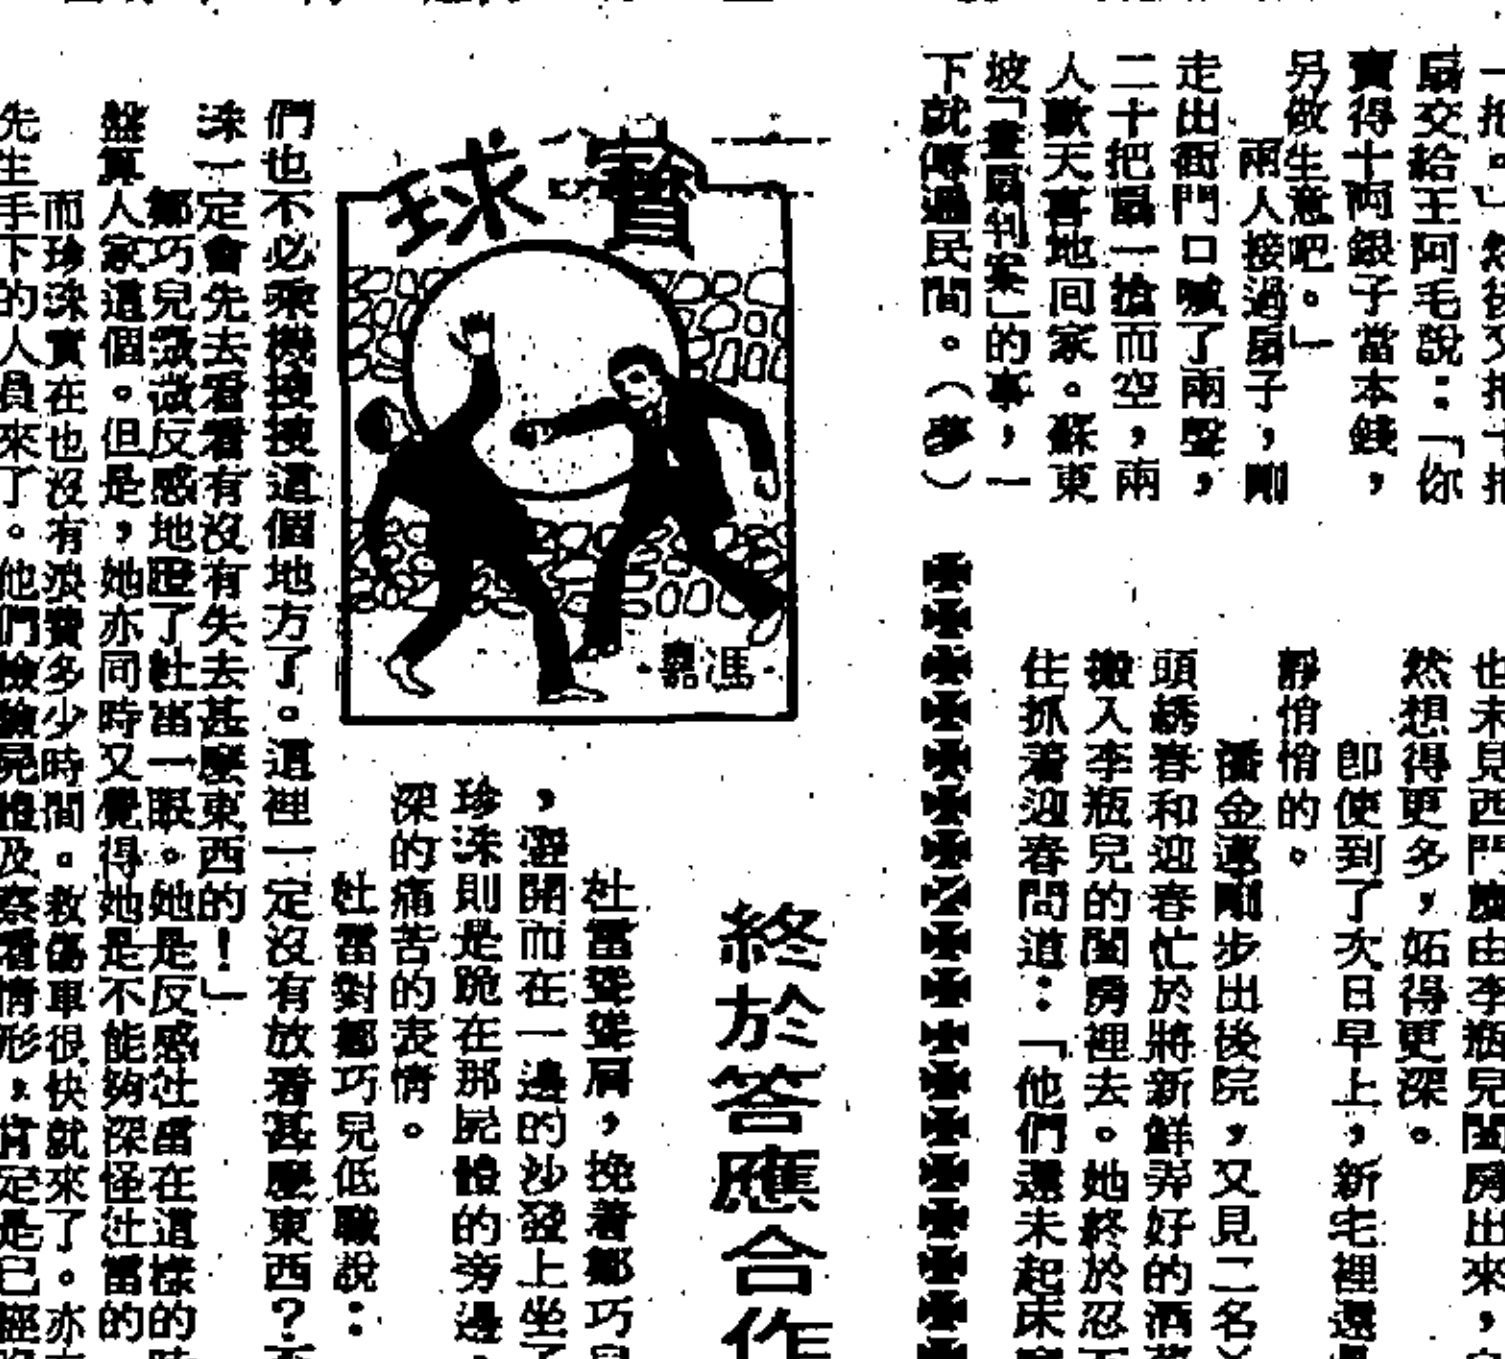 一把。」然後又把十把
扇交給王阿毛說：「你
賣得十両銀子當本錢，
另做生意吧。」
兩人接過扇子，剛
走出衙門口喊了兩聲，
二十把扇一搶而空，兩
人歡天喜地囘家。蘇東
坡「畫扇判案」的事，一
下就傳遍民間。（夢）
也未見西門慶由李瓶兒閨房出來，
然想得更多，妬得更深。
卽使到了次日早上，新宅裡還
靜悄悄的。
潘金蓮剛步出後院，又見二名
頭綉春和迎春忙於將新鮮弄好的酒
搬入李瓶兒的閨房裡去。她終於忍
住抓着迎春問道：「他們還未起床
寶球
馮嘉
終於答應合作
杜雷聳聳肩，挽着鄒巧
，避開而在一邊的沙發上坐了
珍洙則是跪在那屍體的旁邊，
深的痛苦的表情。
杜雷對鄒巧兒低聲說：
們也不必乘機搜搜這個地方了。這裡一定沒有放着甚麼東西？
洙一定會先去看看有沒有失去甚麼東西的！」
鄒巧兒微微反感地瞪了杜雷一眼。她是反感杜雷在這樣的
盤算人家這個。但是，她亦同時又覺得她是不能夠深怪杜雷的
而珍洙實在也沒有浪費多少時間。救傷車很快就來了。亦
先生手下的人員來了。他們檢驗屍體及察看情形，肯定是已經